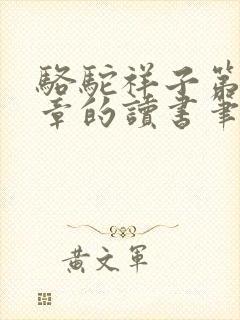 駱駝祥子第
章的讀書筆
黃文軍